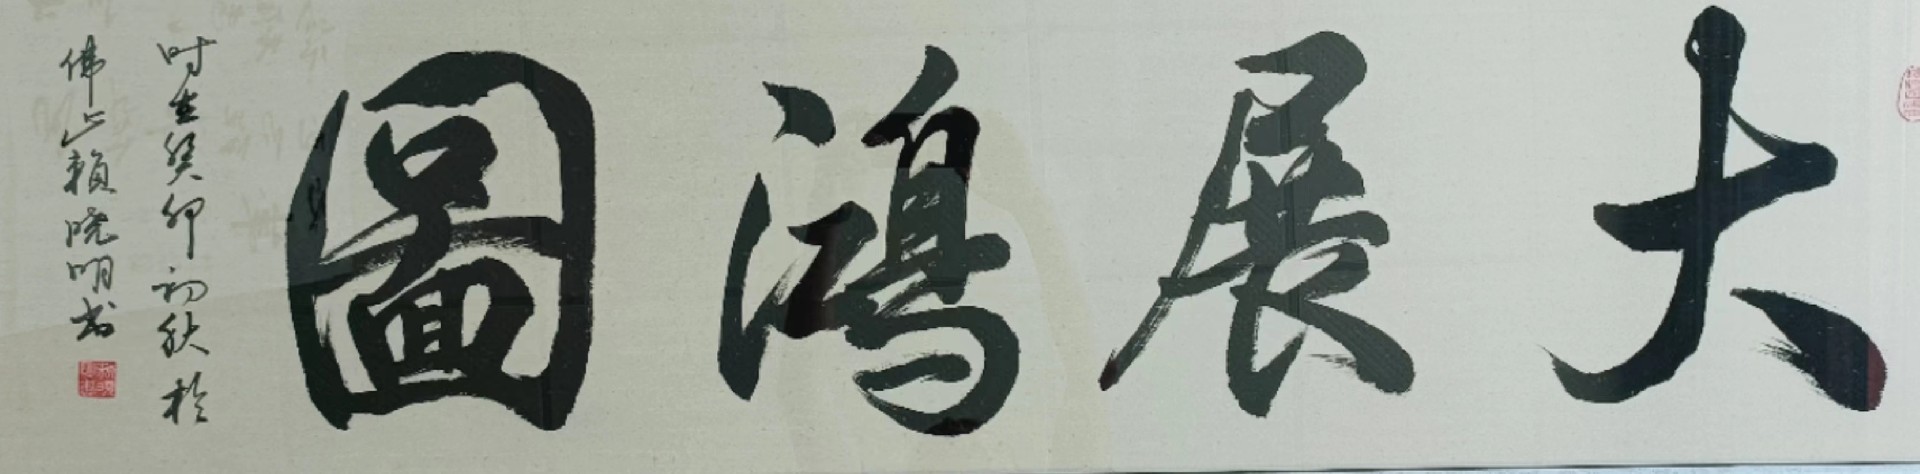 大展鴻圖
时在癸卯初秋於
佛山賴晓明书